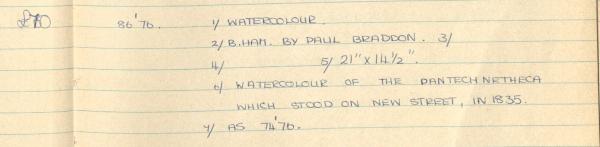 £70 86'76. 1/ WATERCOLOUR.
2/ B.HAM. BY PAUL BRADDON. 3/
4/ 5/ 21" x 14½".
6/ WATERCOLOUR OF THE PANTECHNETHECA
WHICH STOOD ON NEW STREET, IN 1835.
7/ AS 74'76.